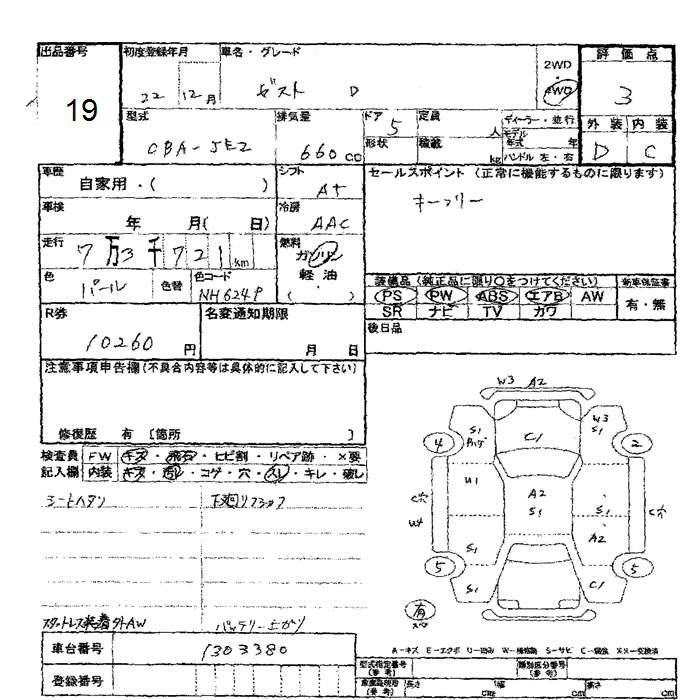 出品番号 初度登録年月 車名・グレード 評価点
2WD
4WD
19 22 12月 ゼスト D 3
型式 排気量 ドア 定員 ディーラー・並行 外装 内装
モデル
CBA-JE2 660 cc 5 人 年式 年 D C
形状 積載 kg ハンドル 左・右
車歴 シフト セールスポイント (正常に機能するものに限ります)
自家用・( ) AT キーフリー
車検 冷房
年 月( 日) AAC
走行 燃料
7万3千721km ガソリン
色 色替 色コード 軽油
パール NH624P ( )
装備品 (純正品に限り○をつけてください) 新車保証書
PS PW ABS エアB AW 有・無
SR ナビ TV カワ
R券 名変通知期限 後日品
10260円 月 日
注意事項申告欄(不具合内容等は具体的に記入して下さい)
修復歴 有 〔箇所 〕
検査員 FW キズ・飛石・ヒビ割・リペア跡・×要
記入欄 内装 キズ・汚レ・コゲ・穴・スレ・キレ・破レ
シートヘタリ 下廻リフショク
スタットレス装着外AW バッテリー上がり
W3 A2
S1 C1 W3 S1
4 2
U1 A2 S1
S1 S1 A2
U4
5 5
S1 C1
有
A-キズ E-エクボ U-凹み W-補修跡 S-サビ C-腐食 XX-交換済
車台番号 1303380
型式指定番号 (参考) 類別区分番号 (参考)
登録番号 (参考) 長さ cm 幅 cm 高さ cm